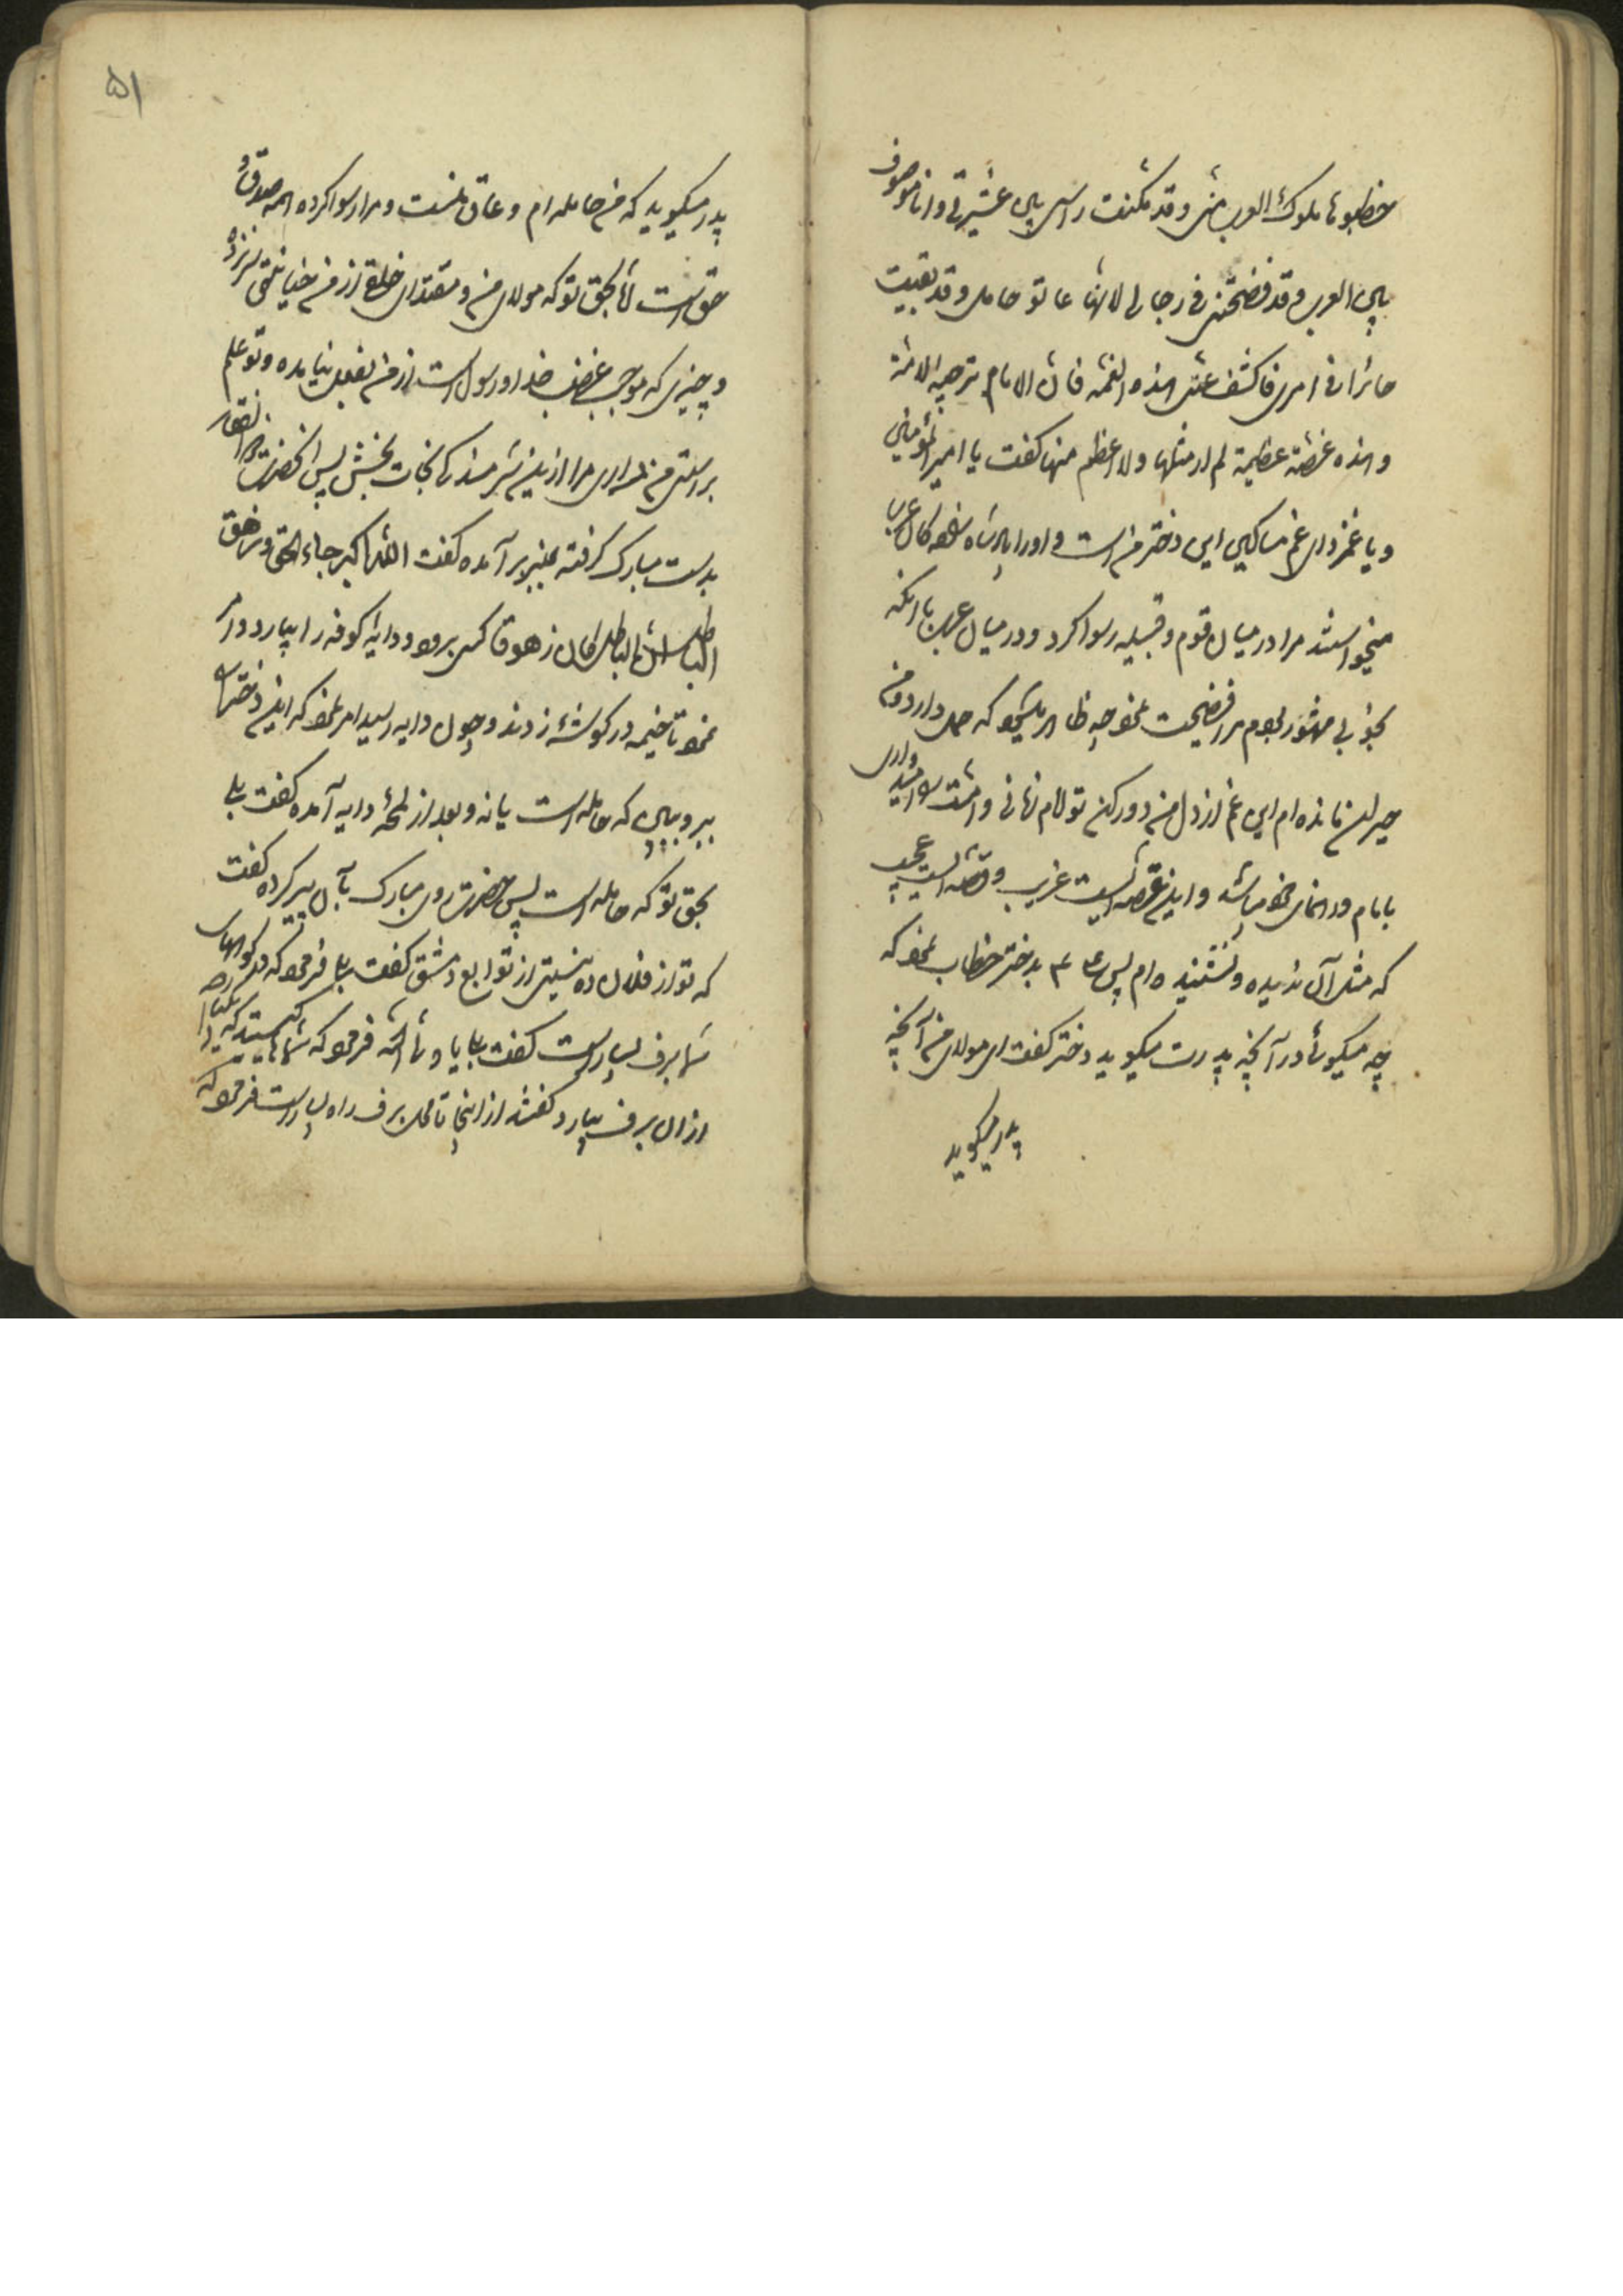 خطبوها ملوک العرب منی وقد نکست راسی بین عشیرتی وانا موصوف
بین العرب وقد فضحتنی فی رجالی لانها عاتق حامل وقد بقیت
حائرا فی امری فاکشف عنی هذه الغمه فان الامام ترجیه الامة
و هذه غصة عظیمة لم ار مثلها ولا اعظم منها کفت یا امیر المؤمنین
و یا غمزدای غم مساکین این دختر من است و او را پادشاه عرب
میخواستند مرا در میان قوم و قبیله رسوا کرد و در میان عرب با آنکه
بخوبی مشهور بودم مرا فضیحت نمود چه ظاهر میشود که حمل دارد و من
حیران مانده ام این غم از دل من دور کن تو امام زمانی و امت امیدواری
بامام و راهنمای خود میباشد و این غصه ایست غریب و قصه ایست عجیب
که مثل آن ندیده و نشنیده ام پس ع م بدختر خطاب نمود که
چه میکوئی در آنچه پدرت میکوید دختر کفت ای مولای من آنچه
پدر میکوید
۵۱
پدر میکوید که من حامله ام و عاق منست و مرا رسوا کرده همه صدق و
حق است اما بحق تو که مولای من و مقتدای خلق از من خیانتی سر نزده
و چیزی که موجب غضب خدا و رسول است از من بفعل نیامده و تو علم
براستی من داری مرا ازین شرمندکی نجات بخش پس آنحضرت ذو الفقار
بدست مبارک کرفته بمنبر برآمده کفت الله اکبر جاء الحق و زهق
الباطل ان الباطل کان زهوقا کسی برود و دایه کوفه را بیارد و امر
نمود تا خیمه در کوشه زدند و چون دایه رسید امر نمود که این دختر را
ببر و ببین که حامله است یا نه و بعد از لمحه دایه آمده کفت بلی
بحق تو که حامله است پس حضرت روی مبارک بآن پیر کرده کفت
که تو از فلان ده نیستی از توابع دمشق کفت بلی فرمود که در کوههای
شما برف بسیار است کفت بلی یا ولی الله فرمود که کیست که
از آن برف بیارد کفتند از اینجا تا محل برف راه بسیار است فرمود که